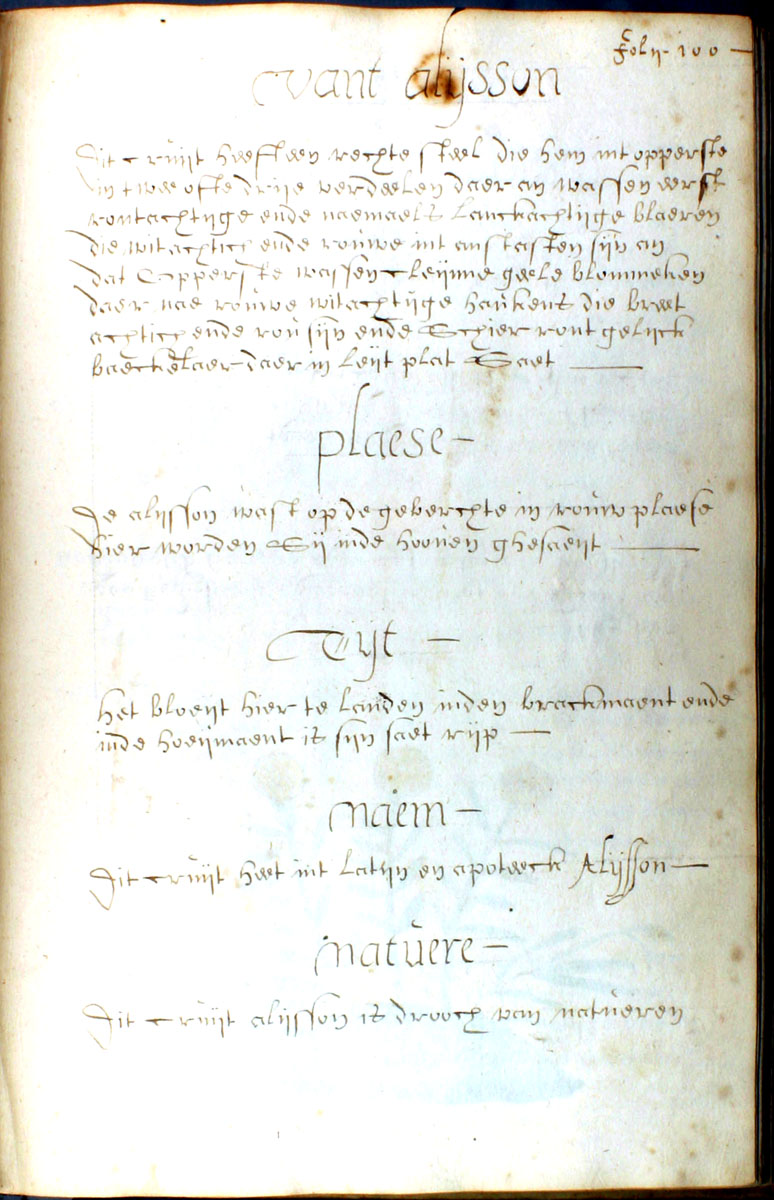 foly. 100 —
vant alijsson
Dit cruijt heeft een rechte steel die hem int opperste
in twee ofte drije verdeelen daer an wassen eerst
rontachtijge ende naemaels lanckachtijge blaeren
die witachtich ende rouwe int antasten sijn an
dat opperste wassen cleijnne geele blommeken
daer nae rouwe witachtijge haukens die breet
achtich ende rou sijn ende schier ront gelijck
baeckelaer daer in leijt plat saet —
plaese —
De alijsson wast op de geberchte in rouw plaese
hier worden sij inde hooven ghesaeijt —
Tijt —
het bloeijt hier te landen inden brackmaent ende
inde hoeijmaent is sijn saet rijp —
naem —
Dit cruijt heet int latijn en apoteeck Alijsson —
natuere —
Dit cruijt alijsson is drooch van natueren